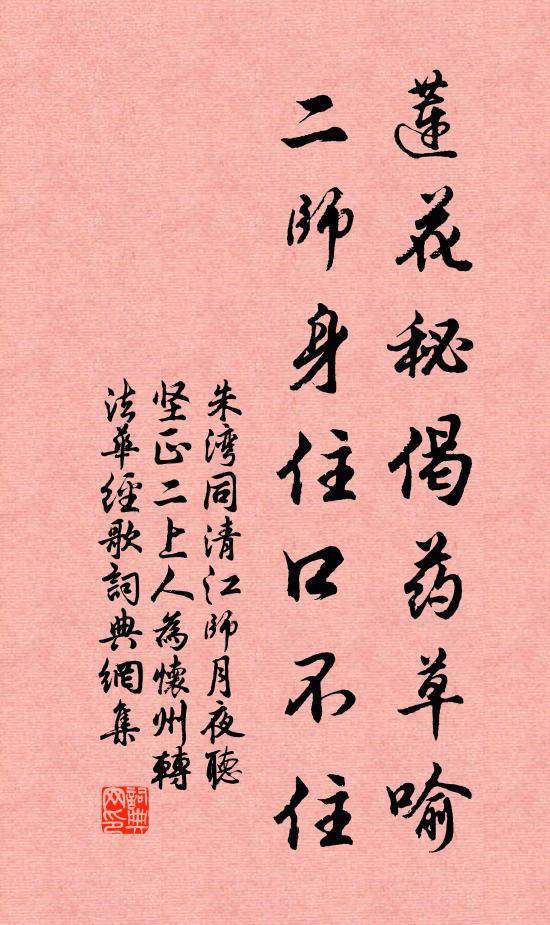 蓮花秘偈药草喻
二師身住口不住
朱湾同清江師月夜聽
坚正二上人為懷州轉
法華經歌詞典網集
詞典网印